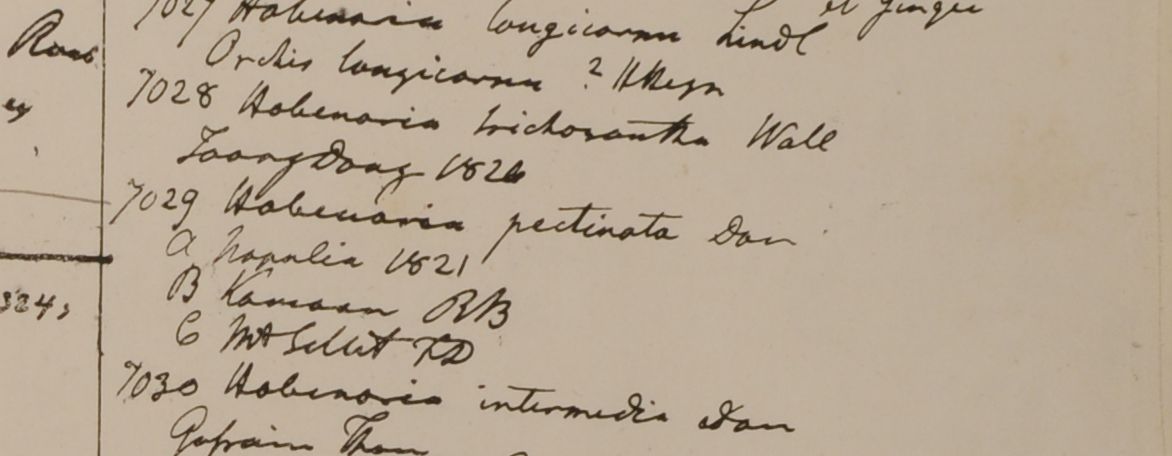 et Gingee
7027 Habenaria longicornu Lindl
Orchis longicornu ? HHeyn
7028 Habenaria trichosantha Wall
Taong Dong 1826
7029 Habenaria pectinata Don
a Napalia 1821
B Kamaon RB
C Mt Sillet FD
7030 Habenaria intermedia Don
Than
324,